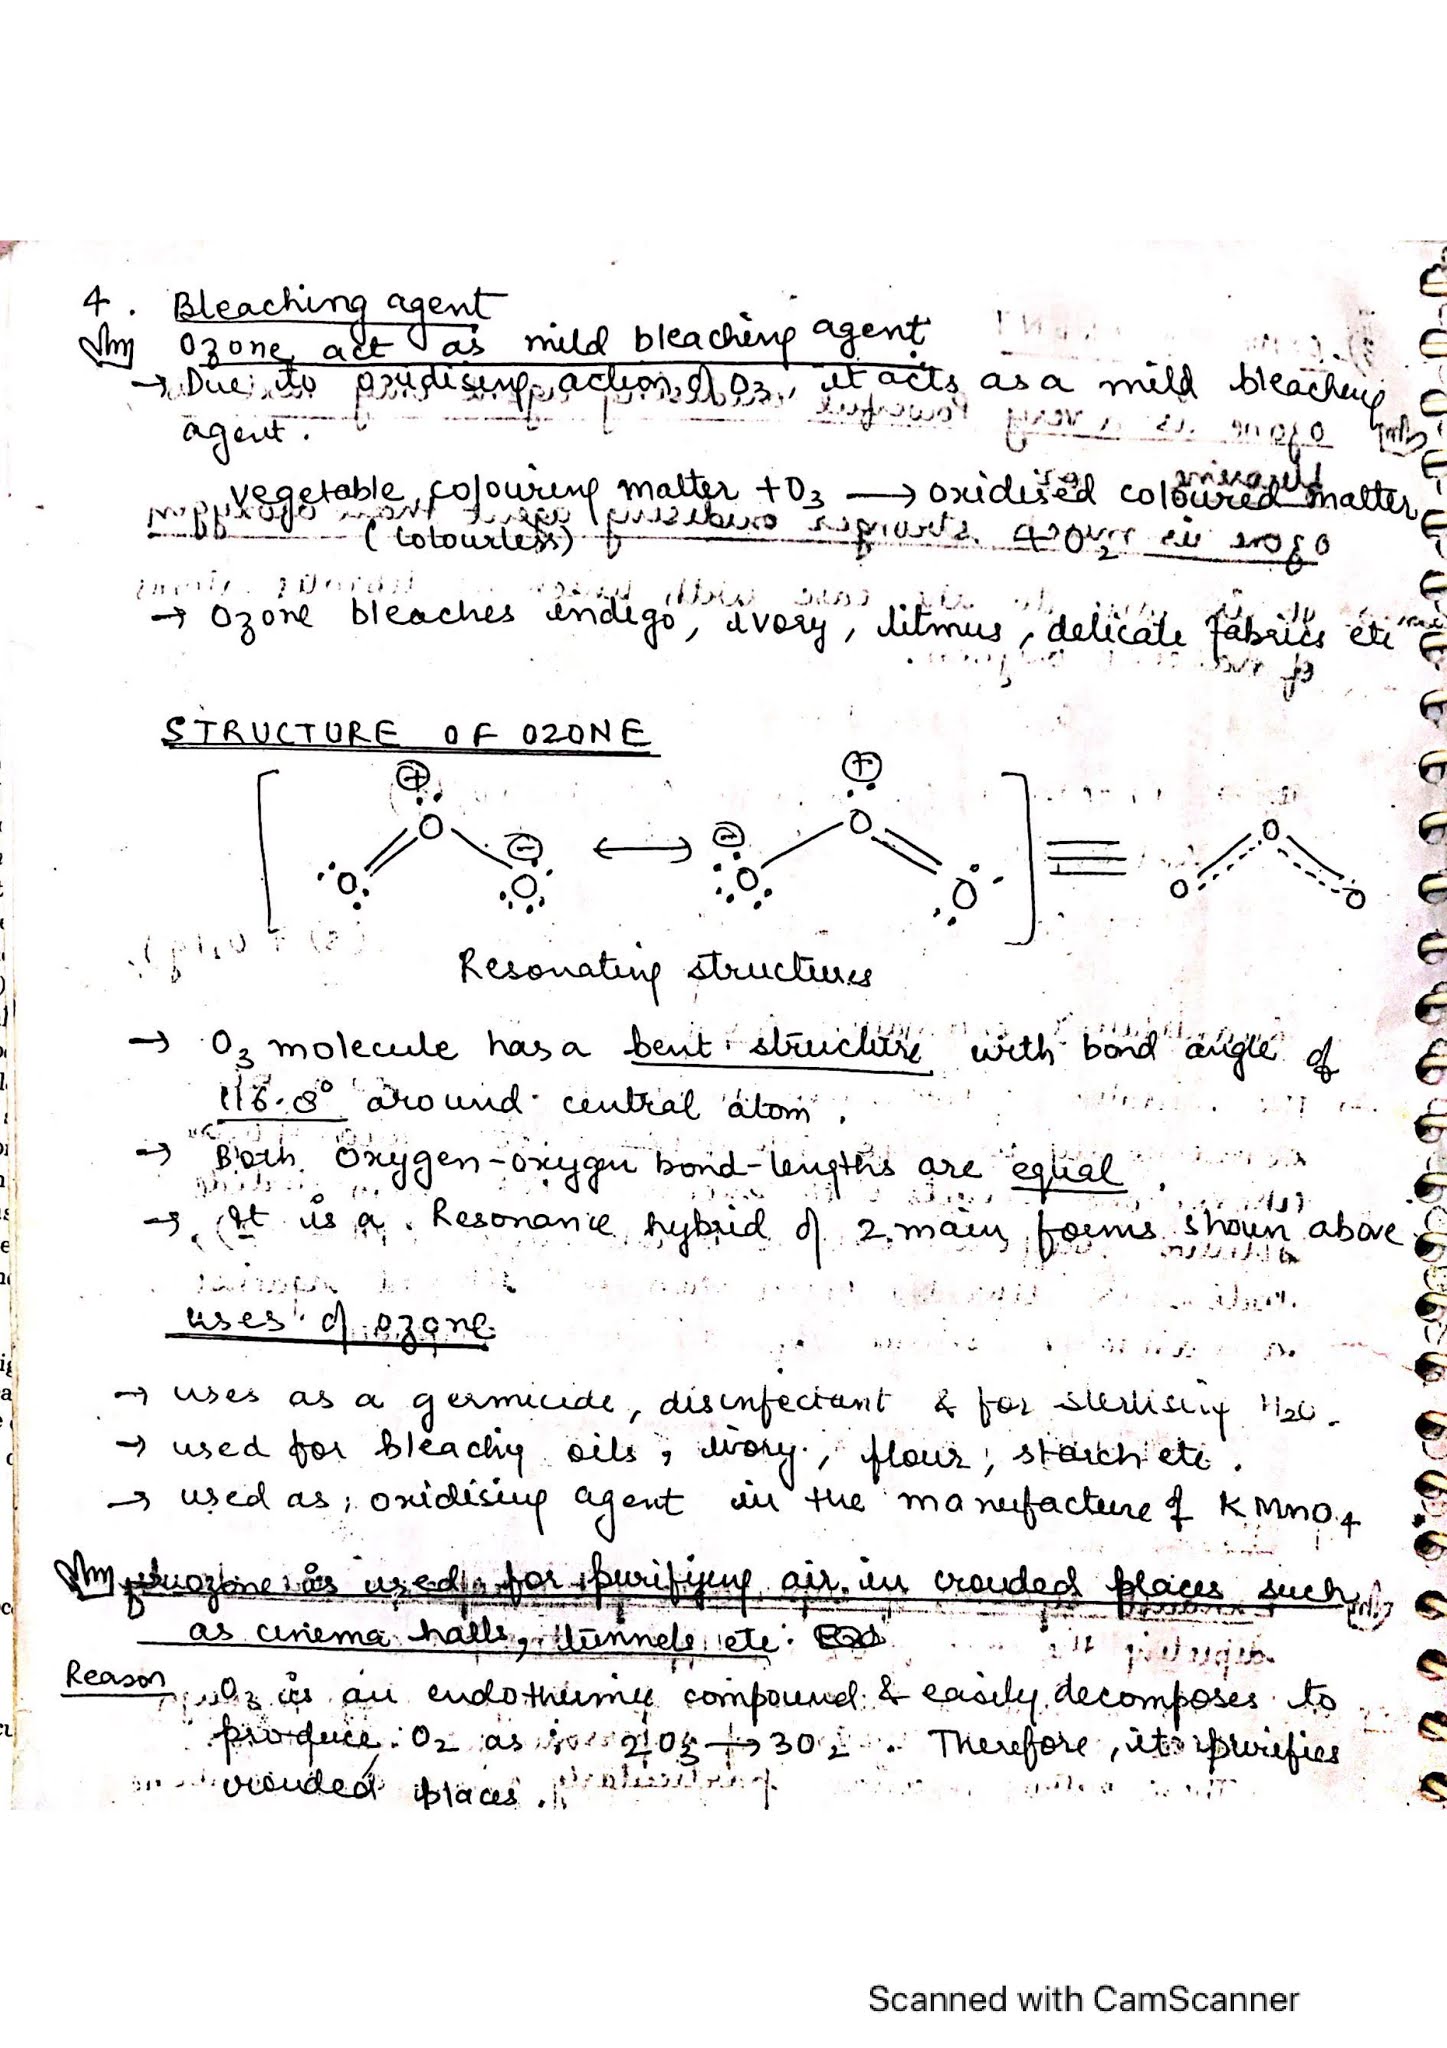 4. Bleaching agent
Imp Ozone act as mild bleaching agent
→ Due to oxidising action of O3, it acts as a mild bleaching
agent.
vegetable colouring matter + O3 → oxidised coloured matter
(colourless) + O2
→ Ozone bleaches indigo, ivory, litmus, delicate fabrics etc
STRUCTURE OF OZONE
Resonating structures
→ O3 molecule has a bent structure with bond angle of
116.8° around central atom.
→ Both Oxygen-oxygen bond-lengths are equal
→ It is a Resonance hybrid of 2 main forms shown above
uses of ozone
→ uses as a germicide, disinfectant & for sterilising H2O.
→ used for bleaching oils, ivory, flour, starch etc.
→ used as oxidising agent in the manufacture of KMnO4
Imp ozone is used for purifying air in crowded places such
as cinema halls, tunnels etc.
Reason O3 is an endothermic compound & easily decomposes to
produce O2 as 2O3 → 3O2. Therefore, it purifies
crowded places.
Scanned with CamScanner